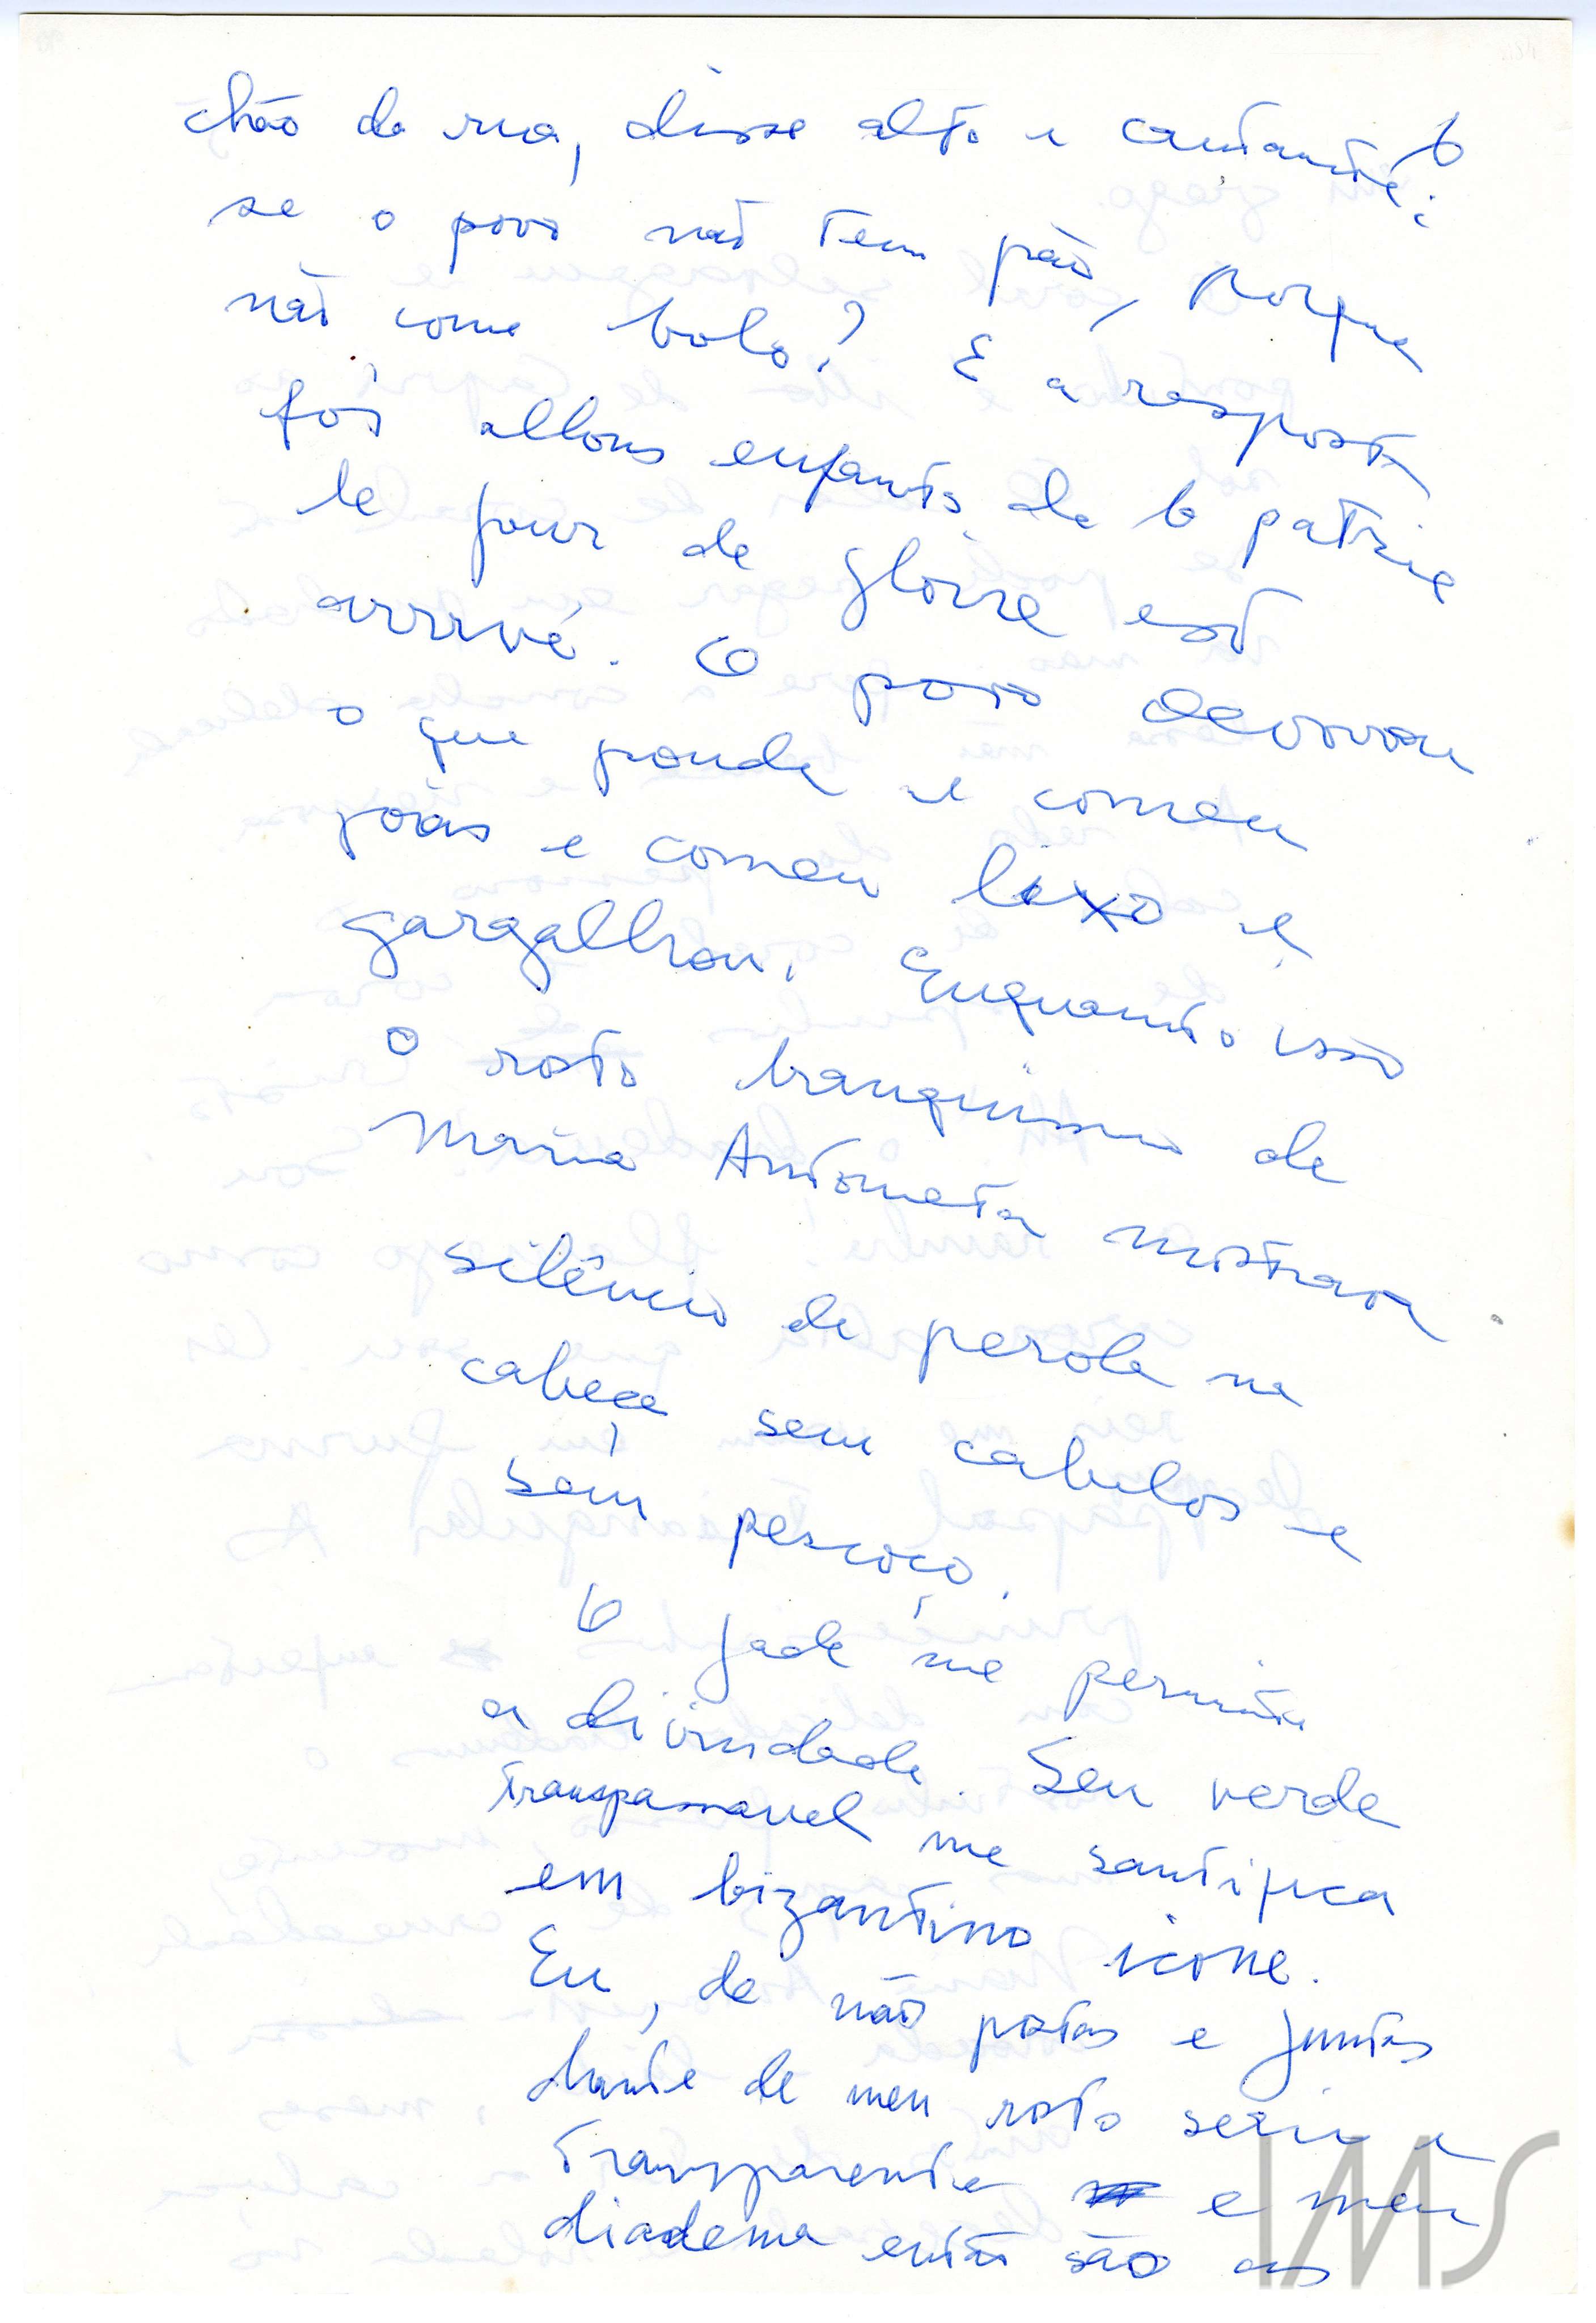 6
chão da rua, disse alto e cantante:
se o povo não tem pão, porque
não come bolo? E a resposta
foi allons enfants de la patrie
le jour de gloire est
arrivé. O povo devorou
o que poude e comeu
joias e comeu lixo e
gargalhou. Enquanto isso
o rosto branquissimo de
Maria Antonieta mostrava
silêncio de perola na
cabeça sem cabelos e
sem pescoço.
O jade me permite
a divindade. Seu verde
transpassavel me santifica
em bizantino icone.
Eu, de mão postas e juntas
diante de meu rosto seria
transparente e meu
diadema então são as
IMS